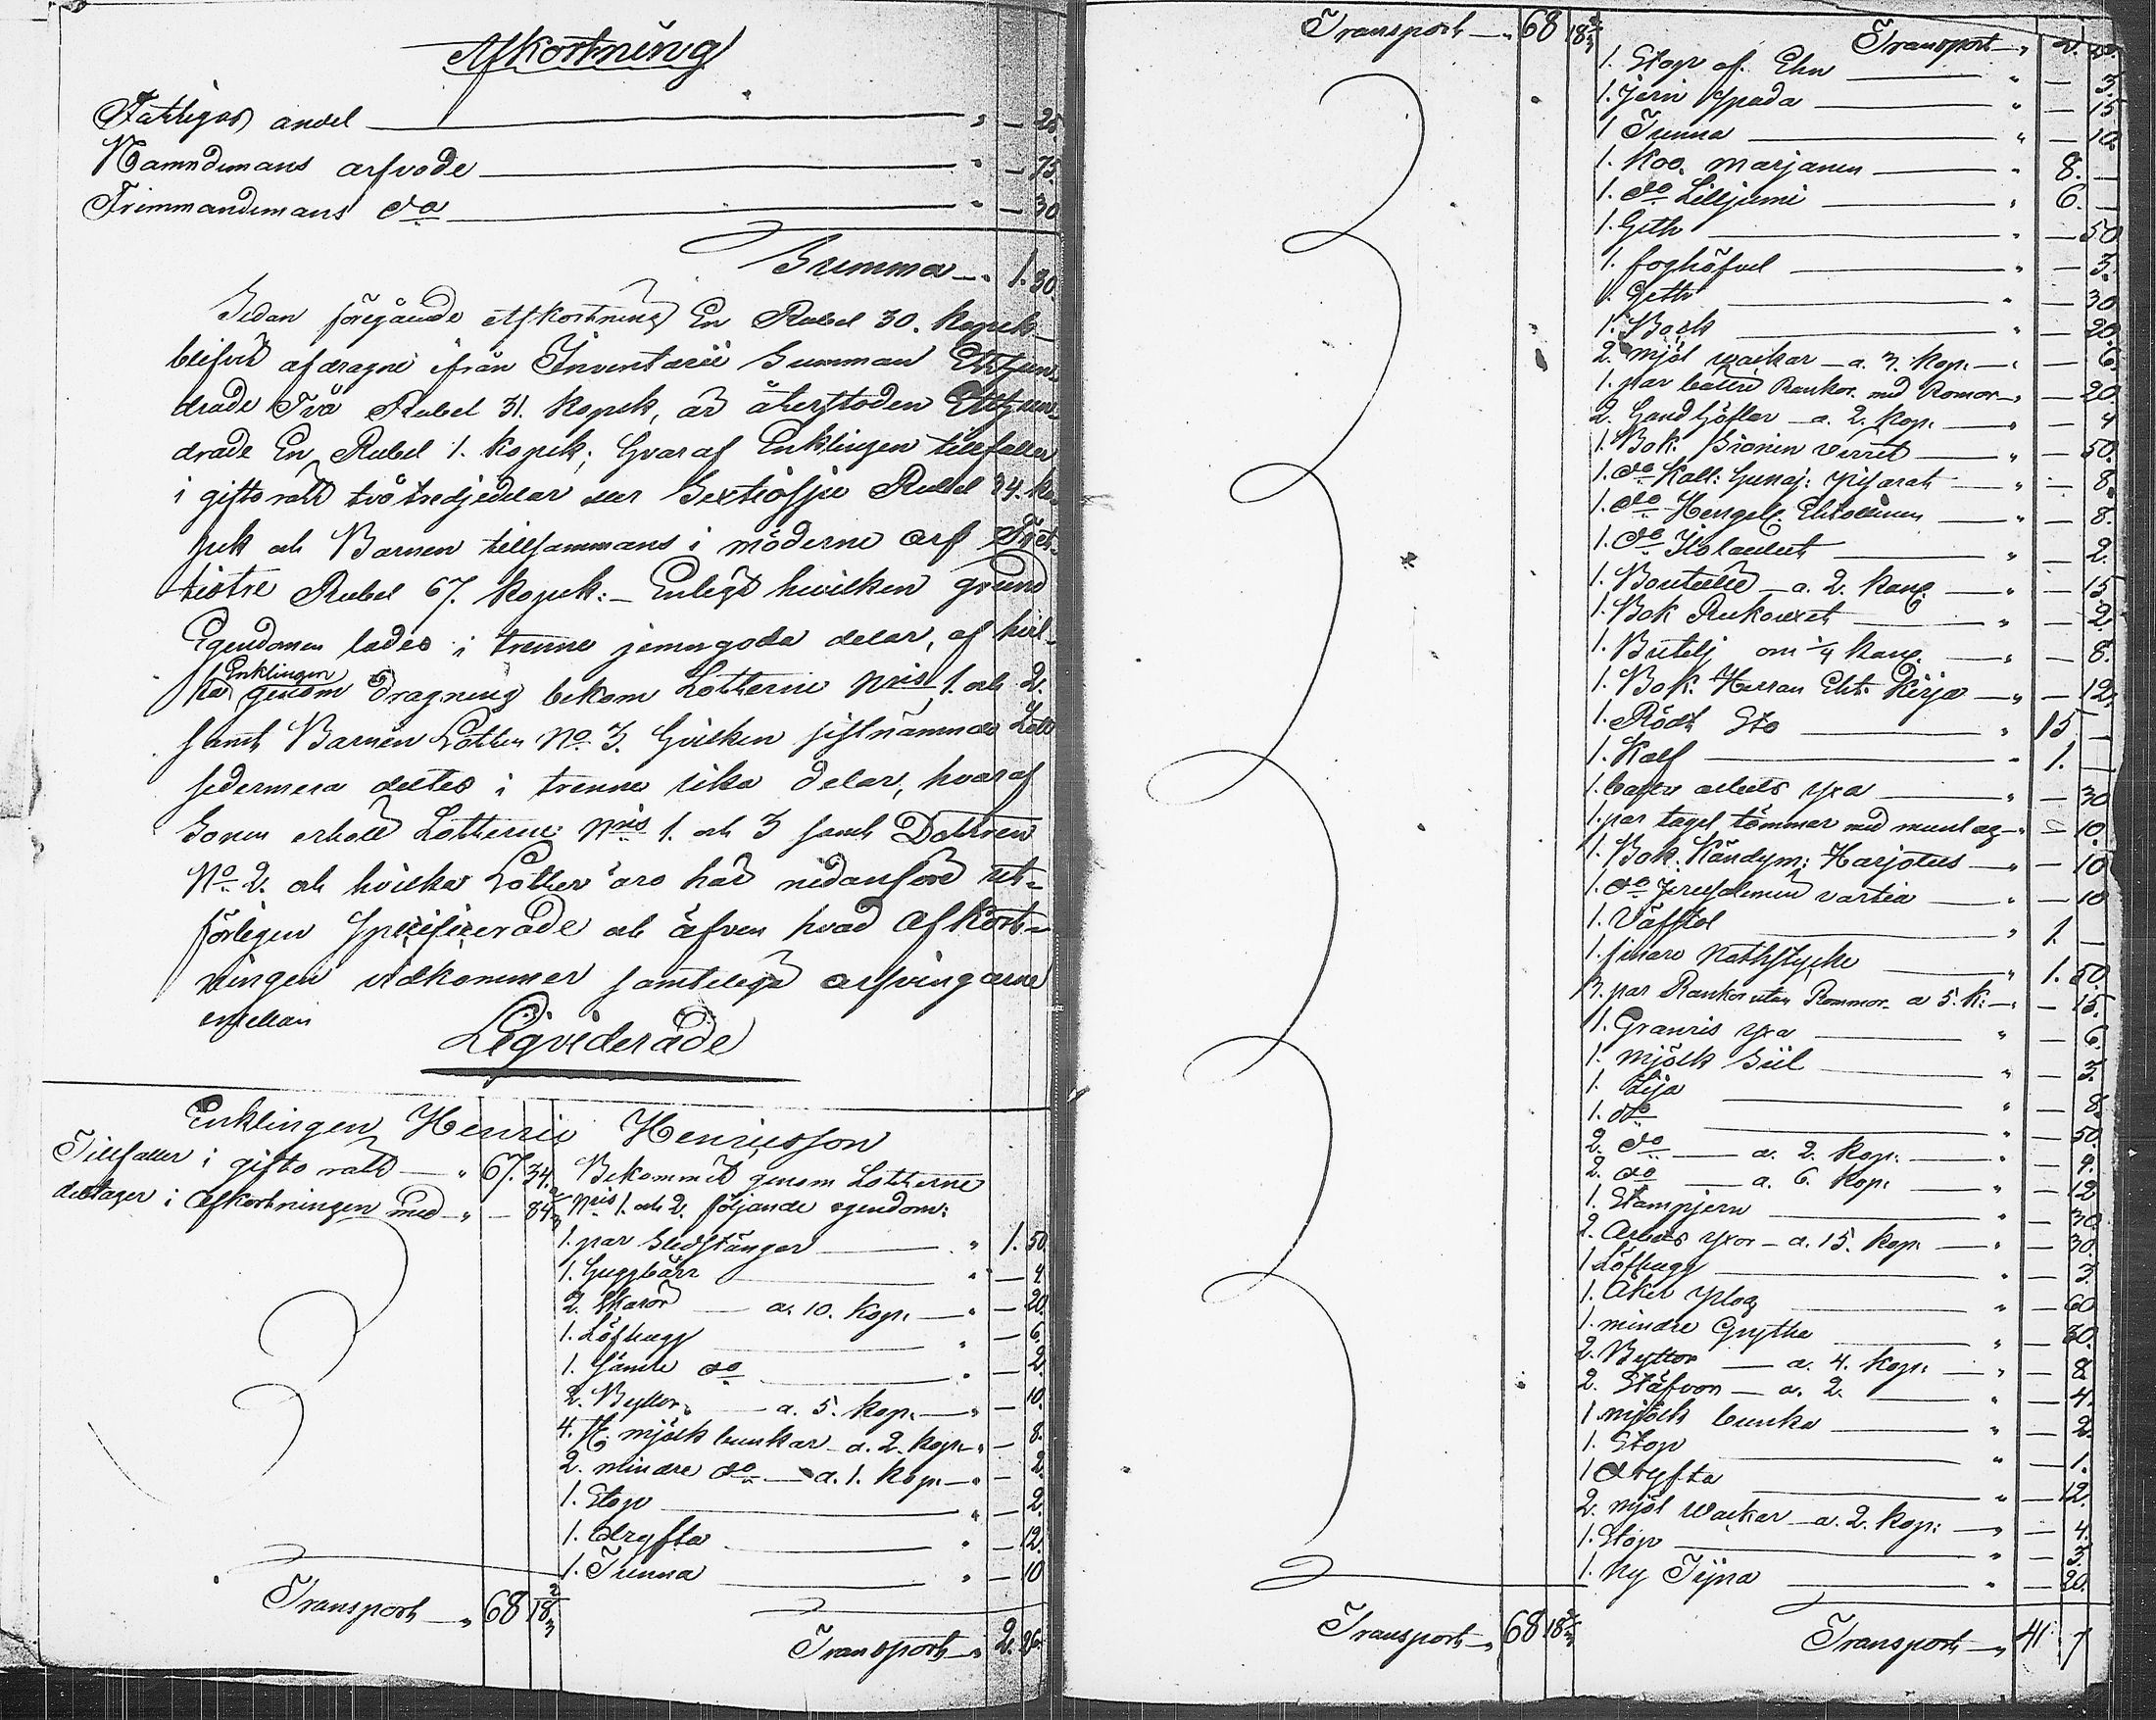 Afkortning
Fattigas andel — " — 25.
Nämndemans arfvode — " — 75.
Tremmandemans do — " — 30
Summa — " 1. 30.
Sedan föregående Afkortning En Rubel 30. Kopek
blifvit afdragne ifrån Inventarii Summan Etthun-
drade Två Rubel 31. Kopek, är återstoden Etthun-
drade En Rubel 1. Kopek; hvaraf Enklingen tillfaller
i giftorätt två tredjedelar eller Sextiosju Rubel 34. Ko-
pek och Barnen tillsammans i möderne arf Tret-
tiotre Rubel 67. Kopek: – Enligt hvilken grund
Egendomen lades i trenne jemngoda delar, af hvil-
ka Enklingen genom dragning bekom Lotterne Nris 1. och 2.
samt Barnen Lotten No 3. hvilken sistnämnda Lott
sedermera deltes i trenne lika delar, hvaraf
Sonen erhöll Lotterne Nris 1. och 3 samt Dottren
No 2. och hvilka Lotter äro här nedanföre ut-
förligen Specificerade och äfven hvad Afkort-
ningen vidkommer samtelige arfvingarne
emellan
Liqviderade
Enklingen Henric Henricsson
Tillfaller i gifto rätt — " 67. 34.
deltager i Afkortningen med — " — 84 2/3
Transport — " 68 18 2/3
Bekommit genom Lotterne
Nris 1. och 2. följande egendom:
1. par Sledstänger — " 1. 50.
1. — " — 4.
2. Skaror — a. 10. Kop. — " — 20.
1. Löfhugg — " — 6.
1. Sämre do — " — 2.
2. Byttor — a. 5. Kop. — " — 10.
4. mjölk bunkar — a. 2. Kop. — " — 8.
2. mindre do — a. 1. Kop. — " — 2.
1. Stop — " — 2.
1. dryfta — " — 12.
1. Tunna — " — 10
Transport — " 2. 26.
Transport — " 68 18 2/3
Transport — " 68 18 2/3
Transport — " 2. 26.
1. Stop af Ehn — " — 3.
1. Jern Spada — " — 15
1 Tunna — " — 10.
1. Koo. Marjanen — " 8. —
1. do Liljumi — " 6. —
1. Geth — " — 50
1. foghöfvel — " — 3.
1. Geth — " — 30
1. Bock — " — 20.
2. mjöl wackar — a. 3. Kop. — " — 6.
1. par Rankor med Romor — " — 20.
2. — a. 2. Kop. — " — 4
1. Bok Sionin Virret — " — 50.
1. do — " — 8.
1. do Hengel. — " — 8.
1. do — " — 2.
1. Boutelle — a. 2. Kan. — " — 15
1. Bok Rukouxet — " — 2.
1. Butelj om 1/4 Kan. — " — 8.
1. Bok: Herran Eht: Kirja — " — 12.
1. Rödt Sto — " 15 —
1. Kalf — " 1. —
1. yxa — " — 30
1. par tagel tömmar med munlag — " — 10.
1. Bok. Harjotus — " — 10
1. do Jerusalemin vartia — " — 10
1. Väfstol — " 1. —
1. finare Nothstycke — " 1. 50
3. par Rankor utan Rommor. a 5. K. — " — 15.
1. Granris yxa — " — 6.
1. mjölk Siil — " — 3.
1. Lija — " — 8.
1. do — " — 50.
2. do — a. 2. Kop. — " — 4.
2. do — a. 6. Kop. — " — 12
1. Stampjern — " — 30.
2. Arbets yxor — a. 15. Kop. — " — 30.
1 Löfhugg — " — 3.
1. Åker plog — " — 60
1. mindre Grytha — " — 30.
2. Byttor — a. 4. Kop. — " — 8
2. Stäfvor — a. 2. — " — 4.
1 mjölk bunka — " — 2.
1. Stop — " — 1.
1 dryfta — " — 12.
2. mjöl wackar — a. 2. Kop. — " — 4.
1. Stop — " — 3.
1. Ny Tijna — " — 20.
Transport — " 41. 7